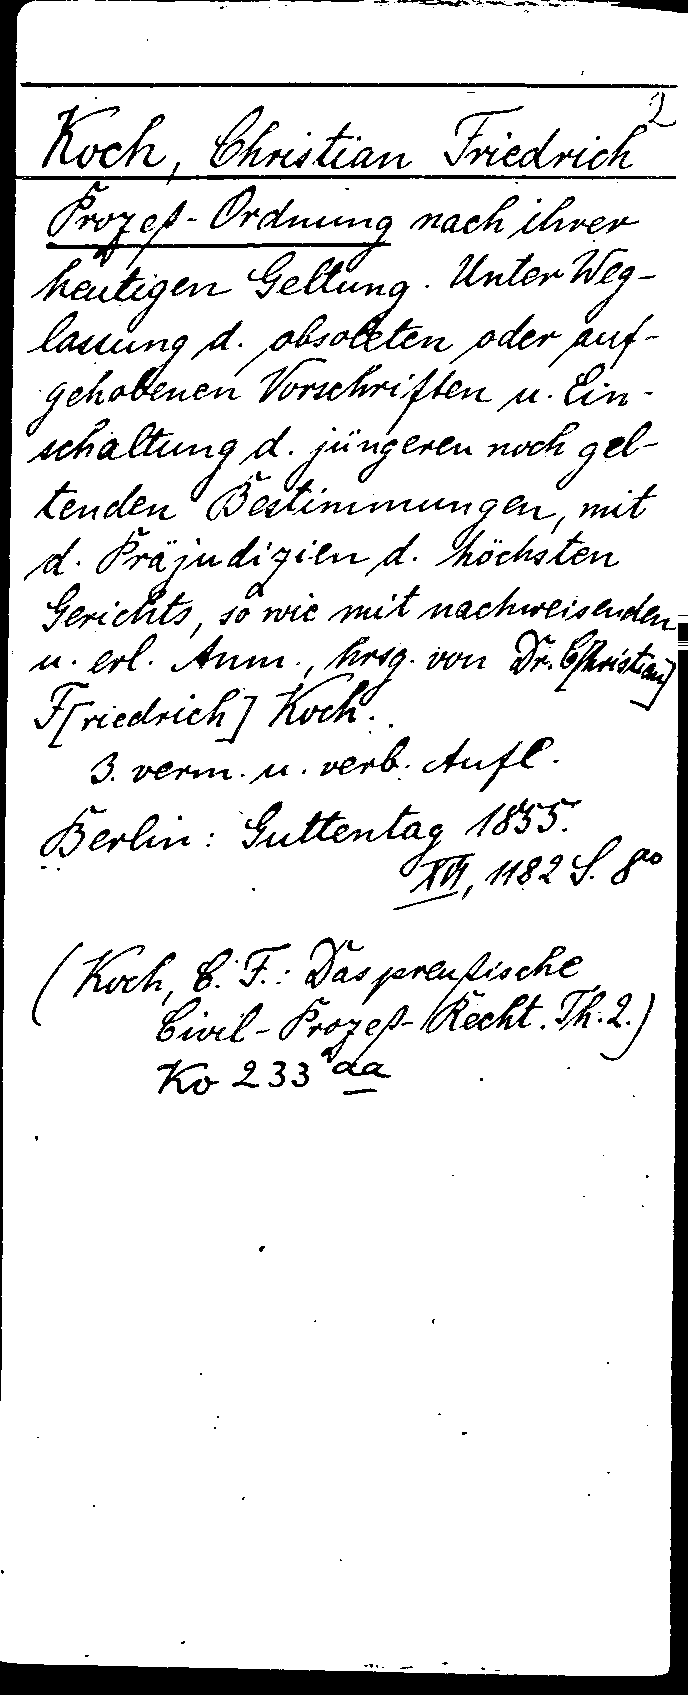 2
Koch, Christian Friedrich
Prozeß-Ordnung nach ihrer
heutigen Geltung. Unter Weg-
lassung d. obsoleten oder auf-
gehobenen Vorschriften u. Ein-
schaltung d. jüngeren noch gel-
tenden Bestimmungen, mit
d. Präjudizien d. höchsten
Gerichts, so wie mit nachweisenden
u. erl. Anm., hrsg. von Dr. C[hristian]
F[riedrich] Koch.
3. verm. u. verb. Aufl.
Berlin: Guttentag 1855.
1182 S. 8°
(Koch, C. F.: Das preußische
Civil-Prozeß-Recht. Th. 2.)
Ko 233 aa